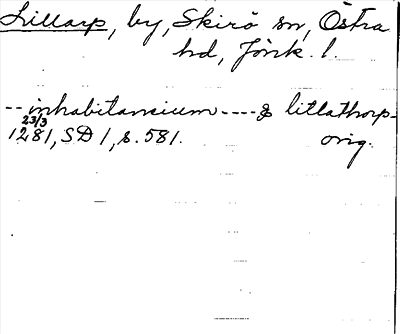 Lillarp, by, Skirö sn, Östra
hd, Jönk. l.
-- inhabitancium ---- & litlathorp-
23/3
1281, SD 1, s. 581. orig.